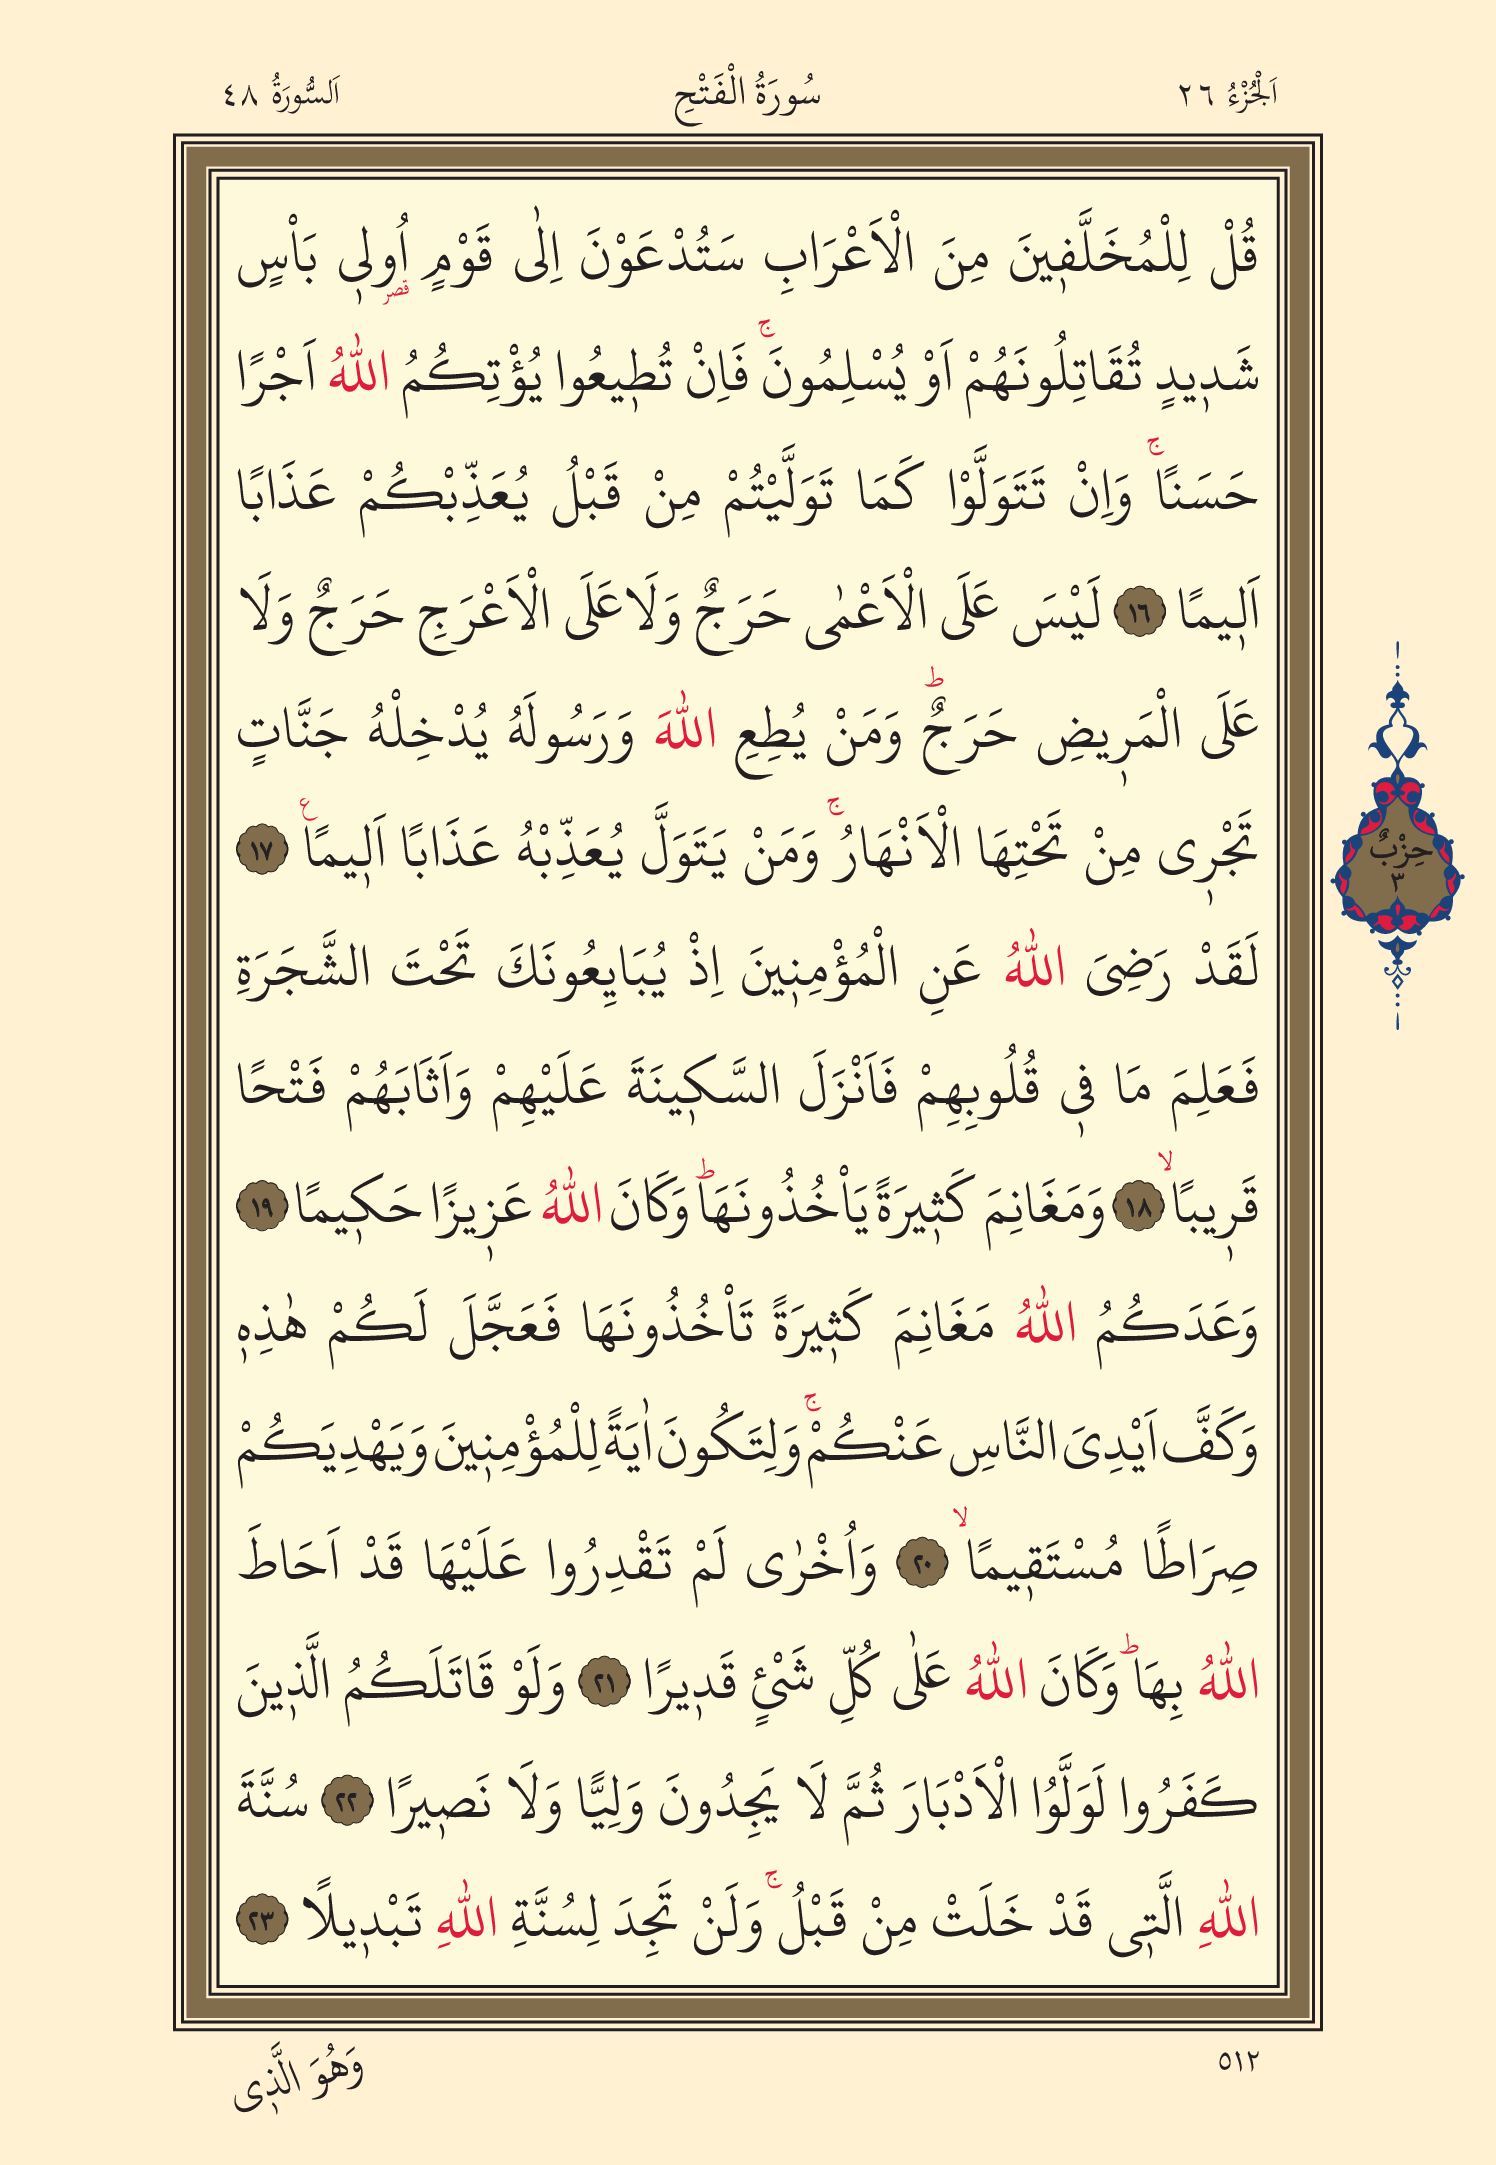 اَلْجُزْءُ ٢٦
سُورَةُ الْفَتْحِ
اَلسُّورَةُ ٤٨
قُلْ لِلْمُخَلَّفٖينَ مِنَ الْاَعْرَابِ سَتُدْعَوْنَ اِلٰى قَوْمٍ اُولٖى بَاْسٍ
قصر
شَدٖيدٍ تُقَاتِلُونَهُمْ اَوْ يُسْلِمُونَۚ فَاِنْ تُطٖيعُوا يُؤْتِكُمُ اللّٰهُ اَجْرًا
حَسَنًاۚ وَاِنْ تَتَوَلَّوْا كَمَا تَوَلَّيْتُمْ مِنْ قَبْلُ يُعَذِّبْكُمْ عَذَابًا
اَلٖيمًا ١٦ لَيْسَ عَلَى الْاَعْمٰى حَرَجٌ وَلَا عَلَى الْاَعْرَجِ حَرَجٌ وَلَا
عَلَى الْمَرٖيضِ حَرَجٌؕ وَمَنْ يُطِعِ اللّٰهَ وَرَسُولَهُ يُدْخِلْهُ جَنَّاتٍ
تَجْرٖى مِنْ تَحْتِهَا الْاَنْهَارُۚ وَمَنْ يَتَوَلَّ يُعَذِّبْهُ عَذَابًا اَلٖيمًاࣖ ١٧
لَقَدْ رَضِىَ اللّٰهُ عَنِ الْمُؤْمِنٖينَ اِذْ يُبَايِعُونَكَ تَحْتَ الشَّجَرَةِ
فَعَلِمَ مَا فٖى قُلُوبِهِمْ فَاَنْزَلَ السَّكٖينَةَ عَلَيْهِمْ وَاَثَابَهُمْ فَتْحًا
قَرٖيبًاۙ ١٨ وَمَغَانِمَ كَثٖيرَةً يَاْخُذُونَهَاؕ وَكَانَ اللّٰهُ عَزٖيزًا حَكٖيمًا ١٩
وَعَدَكُمُ اللّٰهُ مَغَانِمَ كَثٖيرَةً تَاْخُذُونَهَا فَعَجَّلَ لَكُمْ هٰذِهٖ
وَكَفَّ اَيْدِىَ النَّاسِ عَنْكُمْۚ وَلِتَكُونَ اٰيَةً لِلْمُؤْمِنٖينَ وَيَهْدِيَكُمْ
صِرَاطًا مُسْتَقٖيمًاۙ ٢٠ وَاُخْرٰى لَمْ تَقْدِرُوا عَلَيْهَا قَدْ اَحَاطَ
اللّٰهُ بِهَاؕ وَكَانَ اللّٰهُ عَلٰى كُلِّ شَىْءٍ قَدٖيرًا ٢١ وَلَوْ قَاتَلَكُمُ الَّذٖينَ
كَفَرُوا لَوَلَّوُا الْاَدْبَارَ ثُمَّ لَا يَجِدُونَ وَلِيًّا وَلَا نَصٖيرًا ٢٢ سُنَّةَ
اللّٰهِ الَّتٖى قَدْ خَلَتْ مِنْ قَبْلُۚ وَلَنْ تَجِدَ لِسُنَّةِ اللّٰهِ تَبْدٖيلًا ٢٣
حِزْبٌ
٣
٥١٢
وَهُوَ الَّذٖى